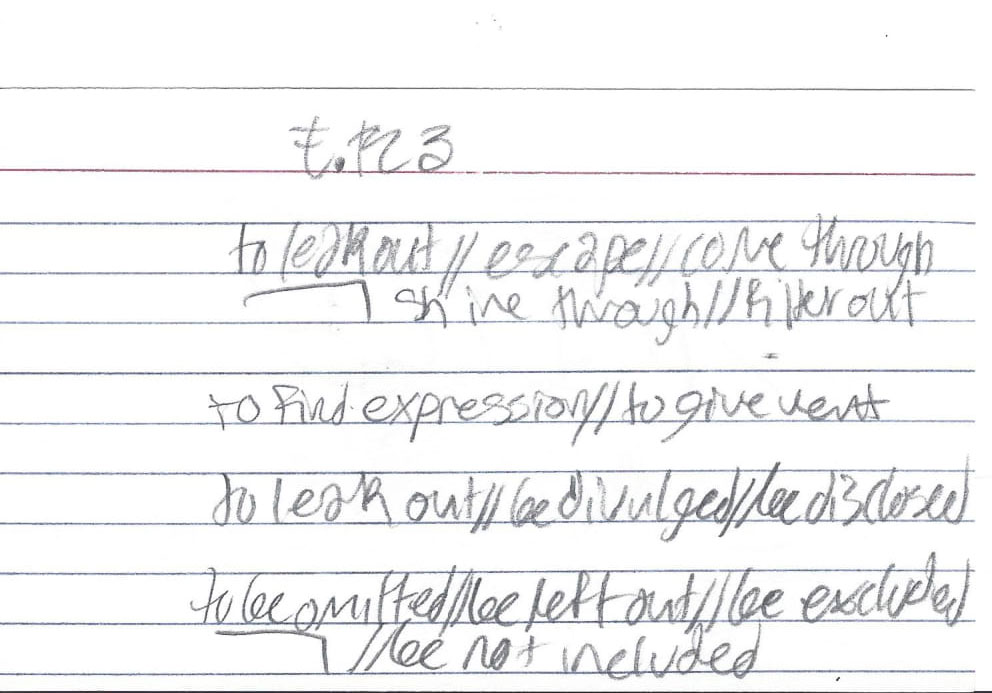 t.пc3
to leak out // escape // come through
shine through // filter out
to find expression // to give vent
to leak out // be divulged // be disclosed
to be omitted // be left out // be excluded
// be not included